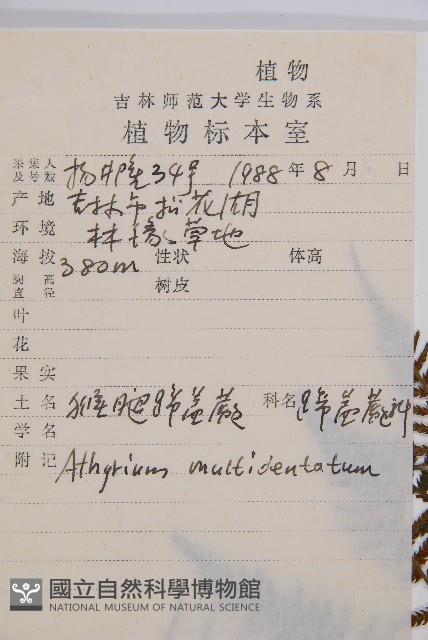 植物
吉林师范大学生物系
植物标本室
采集人及号数 杨井隆34号 1988年8月 日
产地 吉林市松花湖
环境 林缘草地
海拔 380m 性状 体高
胸高直径 树皮
叶
花
果实
土名 猴腿蹄盖蕨 科名 蹄盖蕨科
学名
附记 Athyrium multidentatum
國立自然科學博物館
NATIONAL MUSEUM OF NATURAL SCIENCE